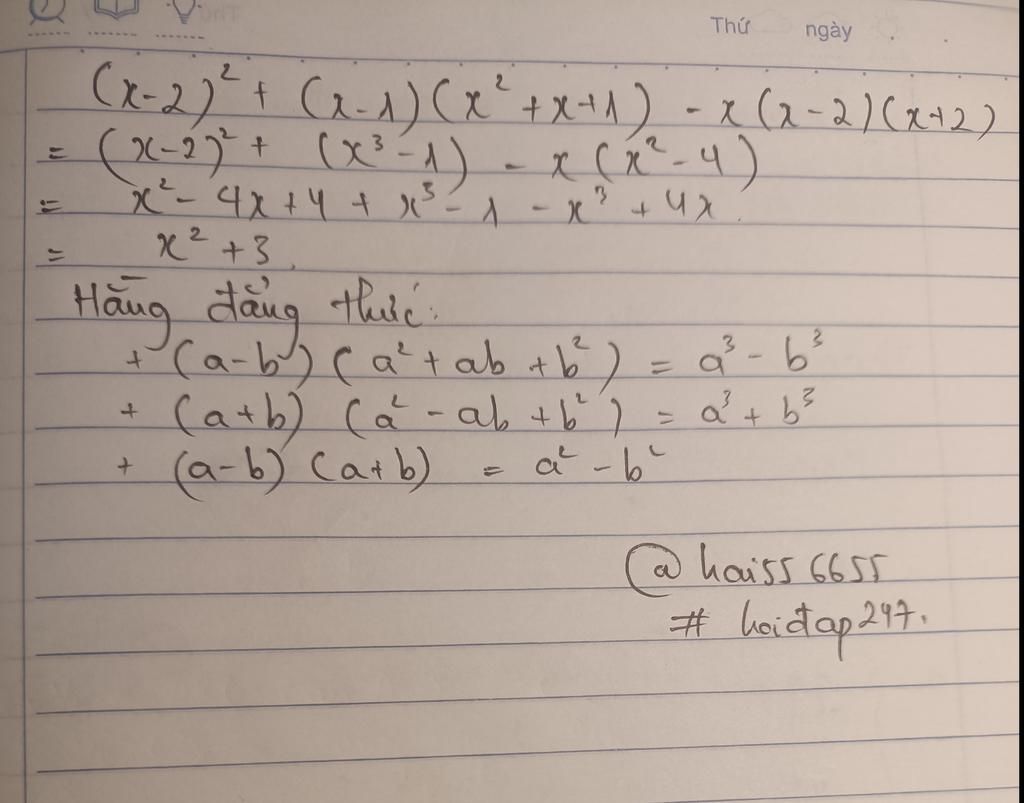 Thứ ngày
(x-2)² + (x-1)(x² +x+1) - x(x-2)(x+2)
= (x-2)² + (x³-1) - x(x²-4)
= x² - 4x+4 + x³ - 1 - x³ + 4x.
= x² +3.
Hằng đẳng thức:
+ (a-b)(a² + ab + b²) = a³ - b³
+ (a+b) (a² - ab + b²) = a³ + b³
+ (a-b) (a+b) = a² - b²
@hai556655
# hoidap247.